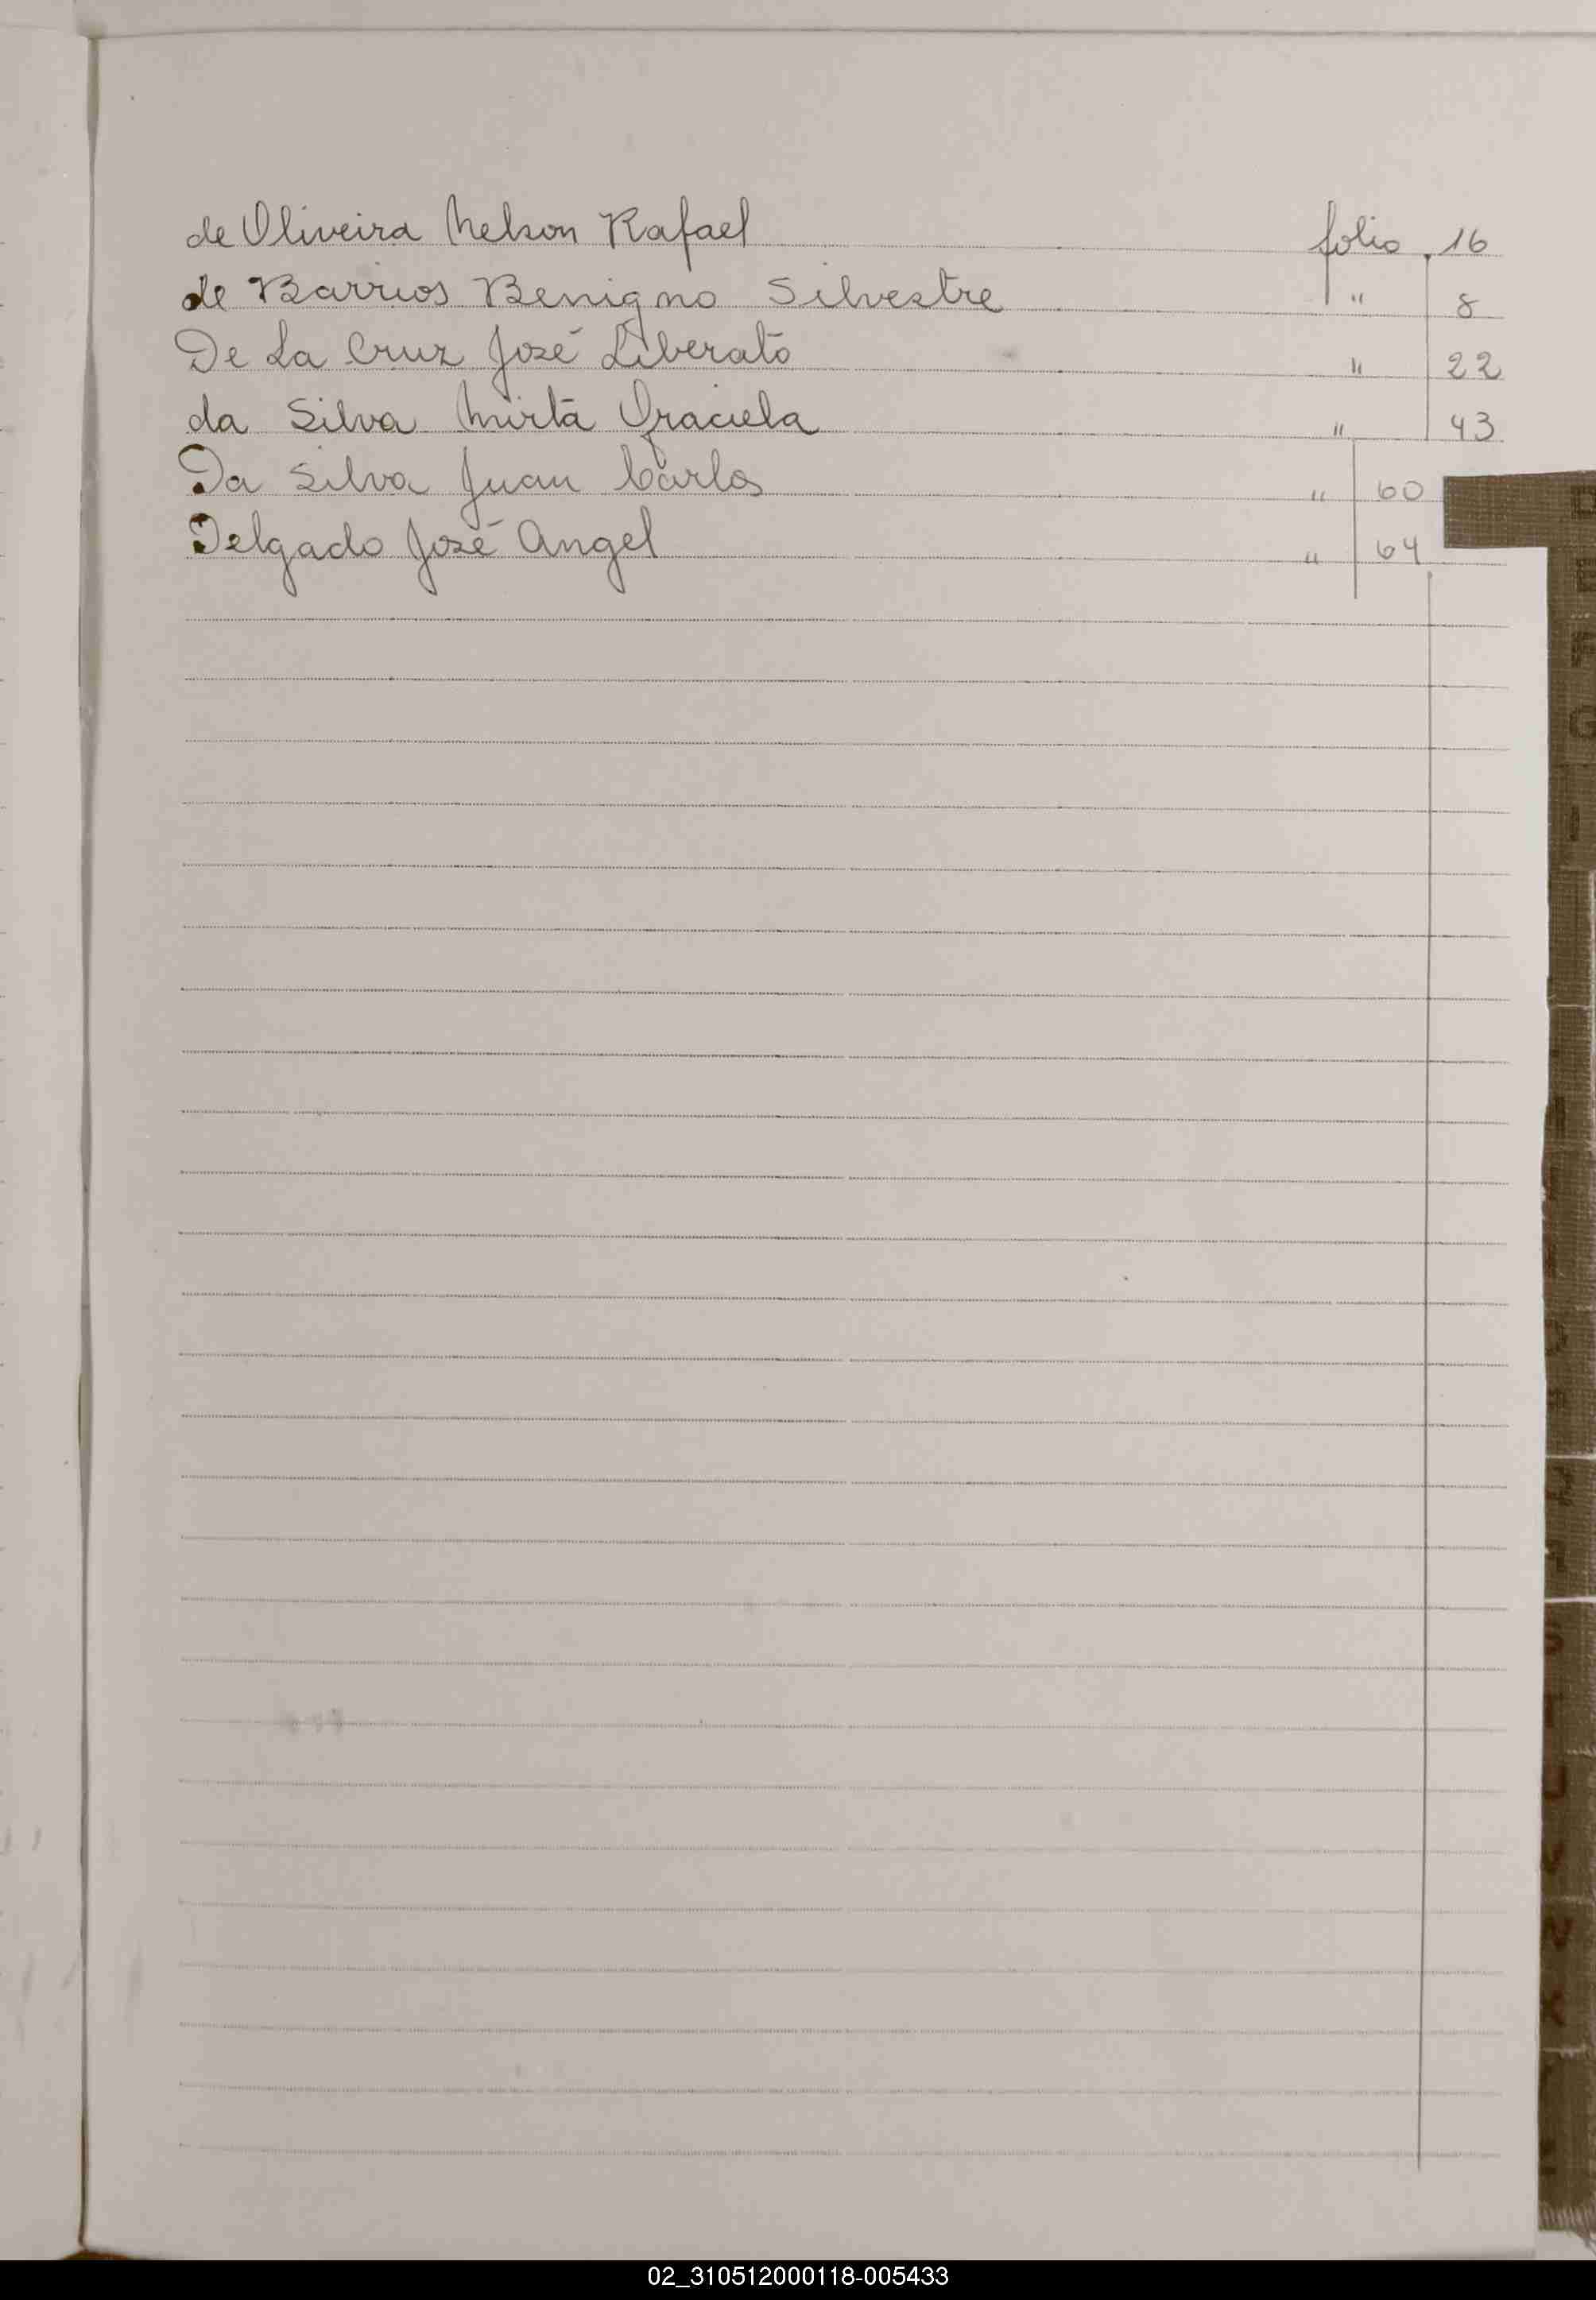 de Oliveira Nelson Rafael folio 16
de Barrios Benigno Silvestre " 8
De La Cruz José Liberato " 22
da Silva Mirta Graciela " 43
Da Silva Juan Carlos " 60
Delgado José Angel " 64
02_310512000118-005433